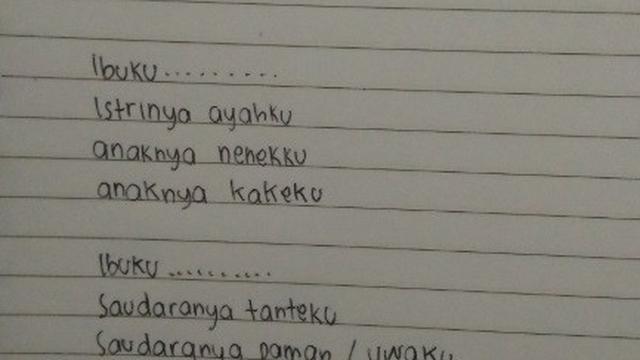 Ibuku.........
Istrinya ayahku
anaknya nenekku
anaknya kakeku
Ibuku..........
Saudaranya tanteku
Saudaranya paman / uwaku